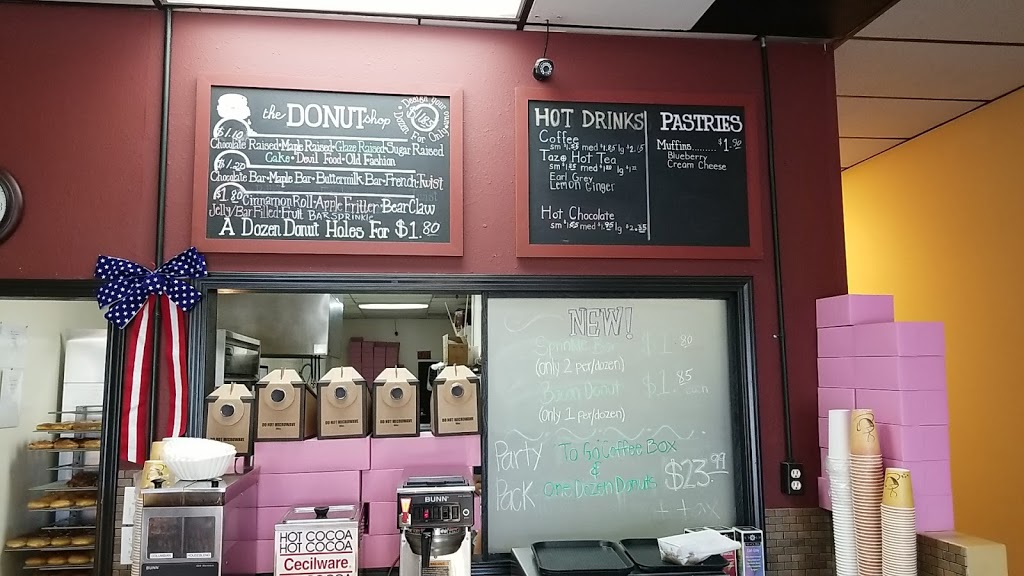 the DONUT shop
Design your own
For Only
$1.10
Chocolate Raised•Maple Raised•Glaze Raised•Sugar Raised
Cake•Devil Food•Old Fashion
$1.20
Chocolate Bar•Maple Bar•Buttermilk Bar•French•Twist
$1.80
Cinnamon Roll•Apple Fritter•Bear Claw
Jelly/Bar Filled•Fruit BAR SPRINKLE
A Dozen Donut Holes For $1.80
HOT DRINKS
Coffee
sm med lg $2.15
Tazo Hot Tea
sm med lg
Earl Grey
Lemon Ginger
Hot Chocolate
sm med lg $2.35
PASTRIES
Muffins.......... $1.90
Blueberry
Cream Cheese
NEW!
Sprinkle Bar $1.80
(only 2 per/dozen)
Bacon Donut $1.85 each
(only 1 per/dozen)
Party To Go Coffee Box
&
Pack One Dozen Donuts $23.99
+ tax
DO NOT MICROWAVE
DO NOT MICROWAVE
DO NOT MICROWAVE
DO NOT MICROWAVE
DO NOT MICROWAVE
BUNN
BUNN
HOT COCOA
HOT COCOA
Cecilware.